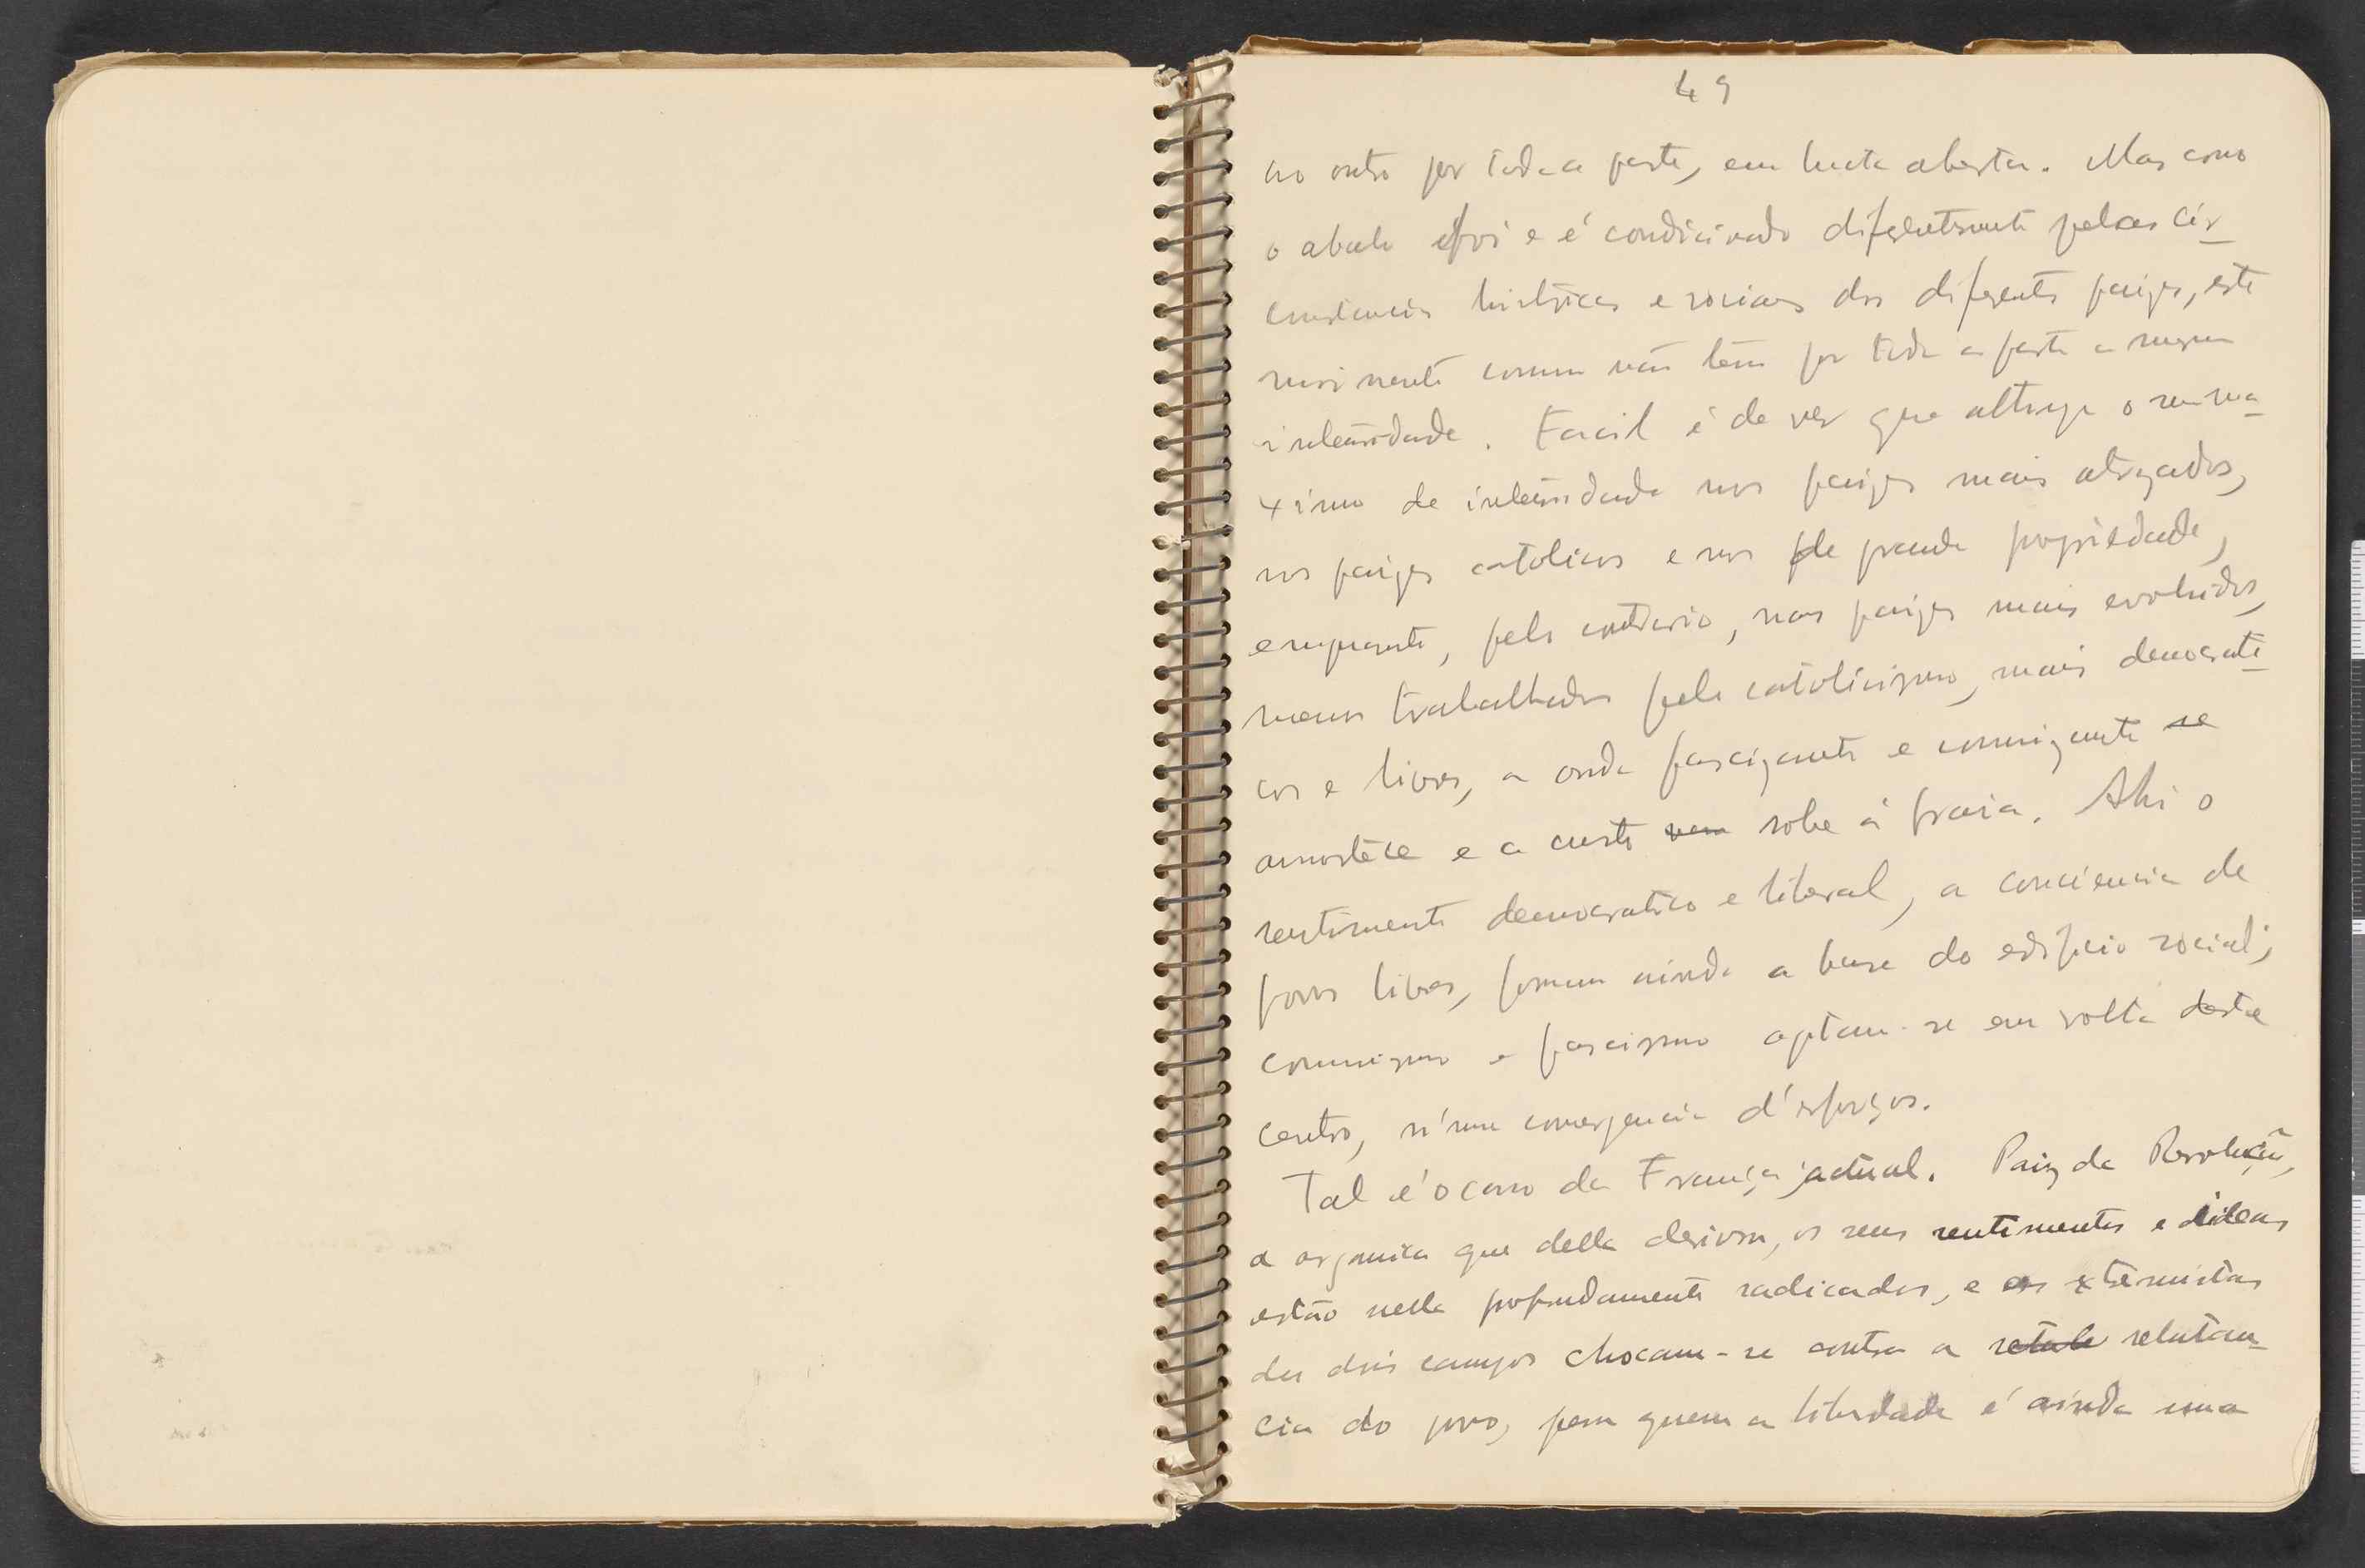 49
ao outro por toda a parte, em lucta aberta. Mas como
o abalo foi e é condicionado diferentemente pelas cir-
cunstancias historicas e sociaes dos diferentes paizes, este
movimento comum não tem por toda a parte a mesma
intensidade. Facil é de ver que attinge o seu ma-
ximo de intensidade nos paizes mais atrazados,
nos paizes catolicos e nos de grande propriedade,
emquanto, pelo contrario, nos paizes mais evoluidos,
menos trabalhados pelo catolicismo, mais democrati-
cos e livres, a onda fascizante e comunizante se
amortece e a custo vem sobe á praia. Ahi o
sentimento democratico e liberal, a conciencia de
povos livres, formam ainda a base do edificio social;
comunismo e fascismo agitam-se em volta deste
centro, n'uma convergencia d'esforços.
Tal é o caso da França actual. Paiz da Revolução,
a organica que della deriva, os seus sentimentos e ideas
estão nella profundamente radicados, e os extremistas
dos dois campos chocam-se contra a relutan-
cia do povo, para quem a liberdade é ainda uma